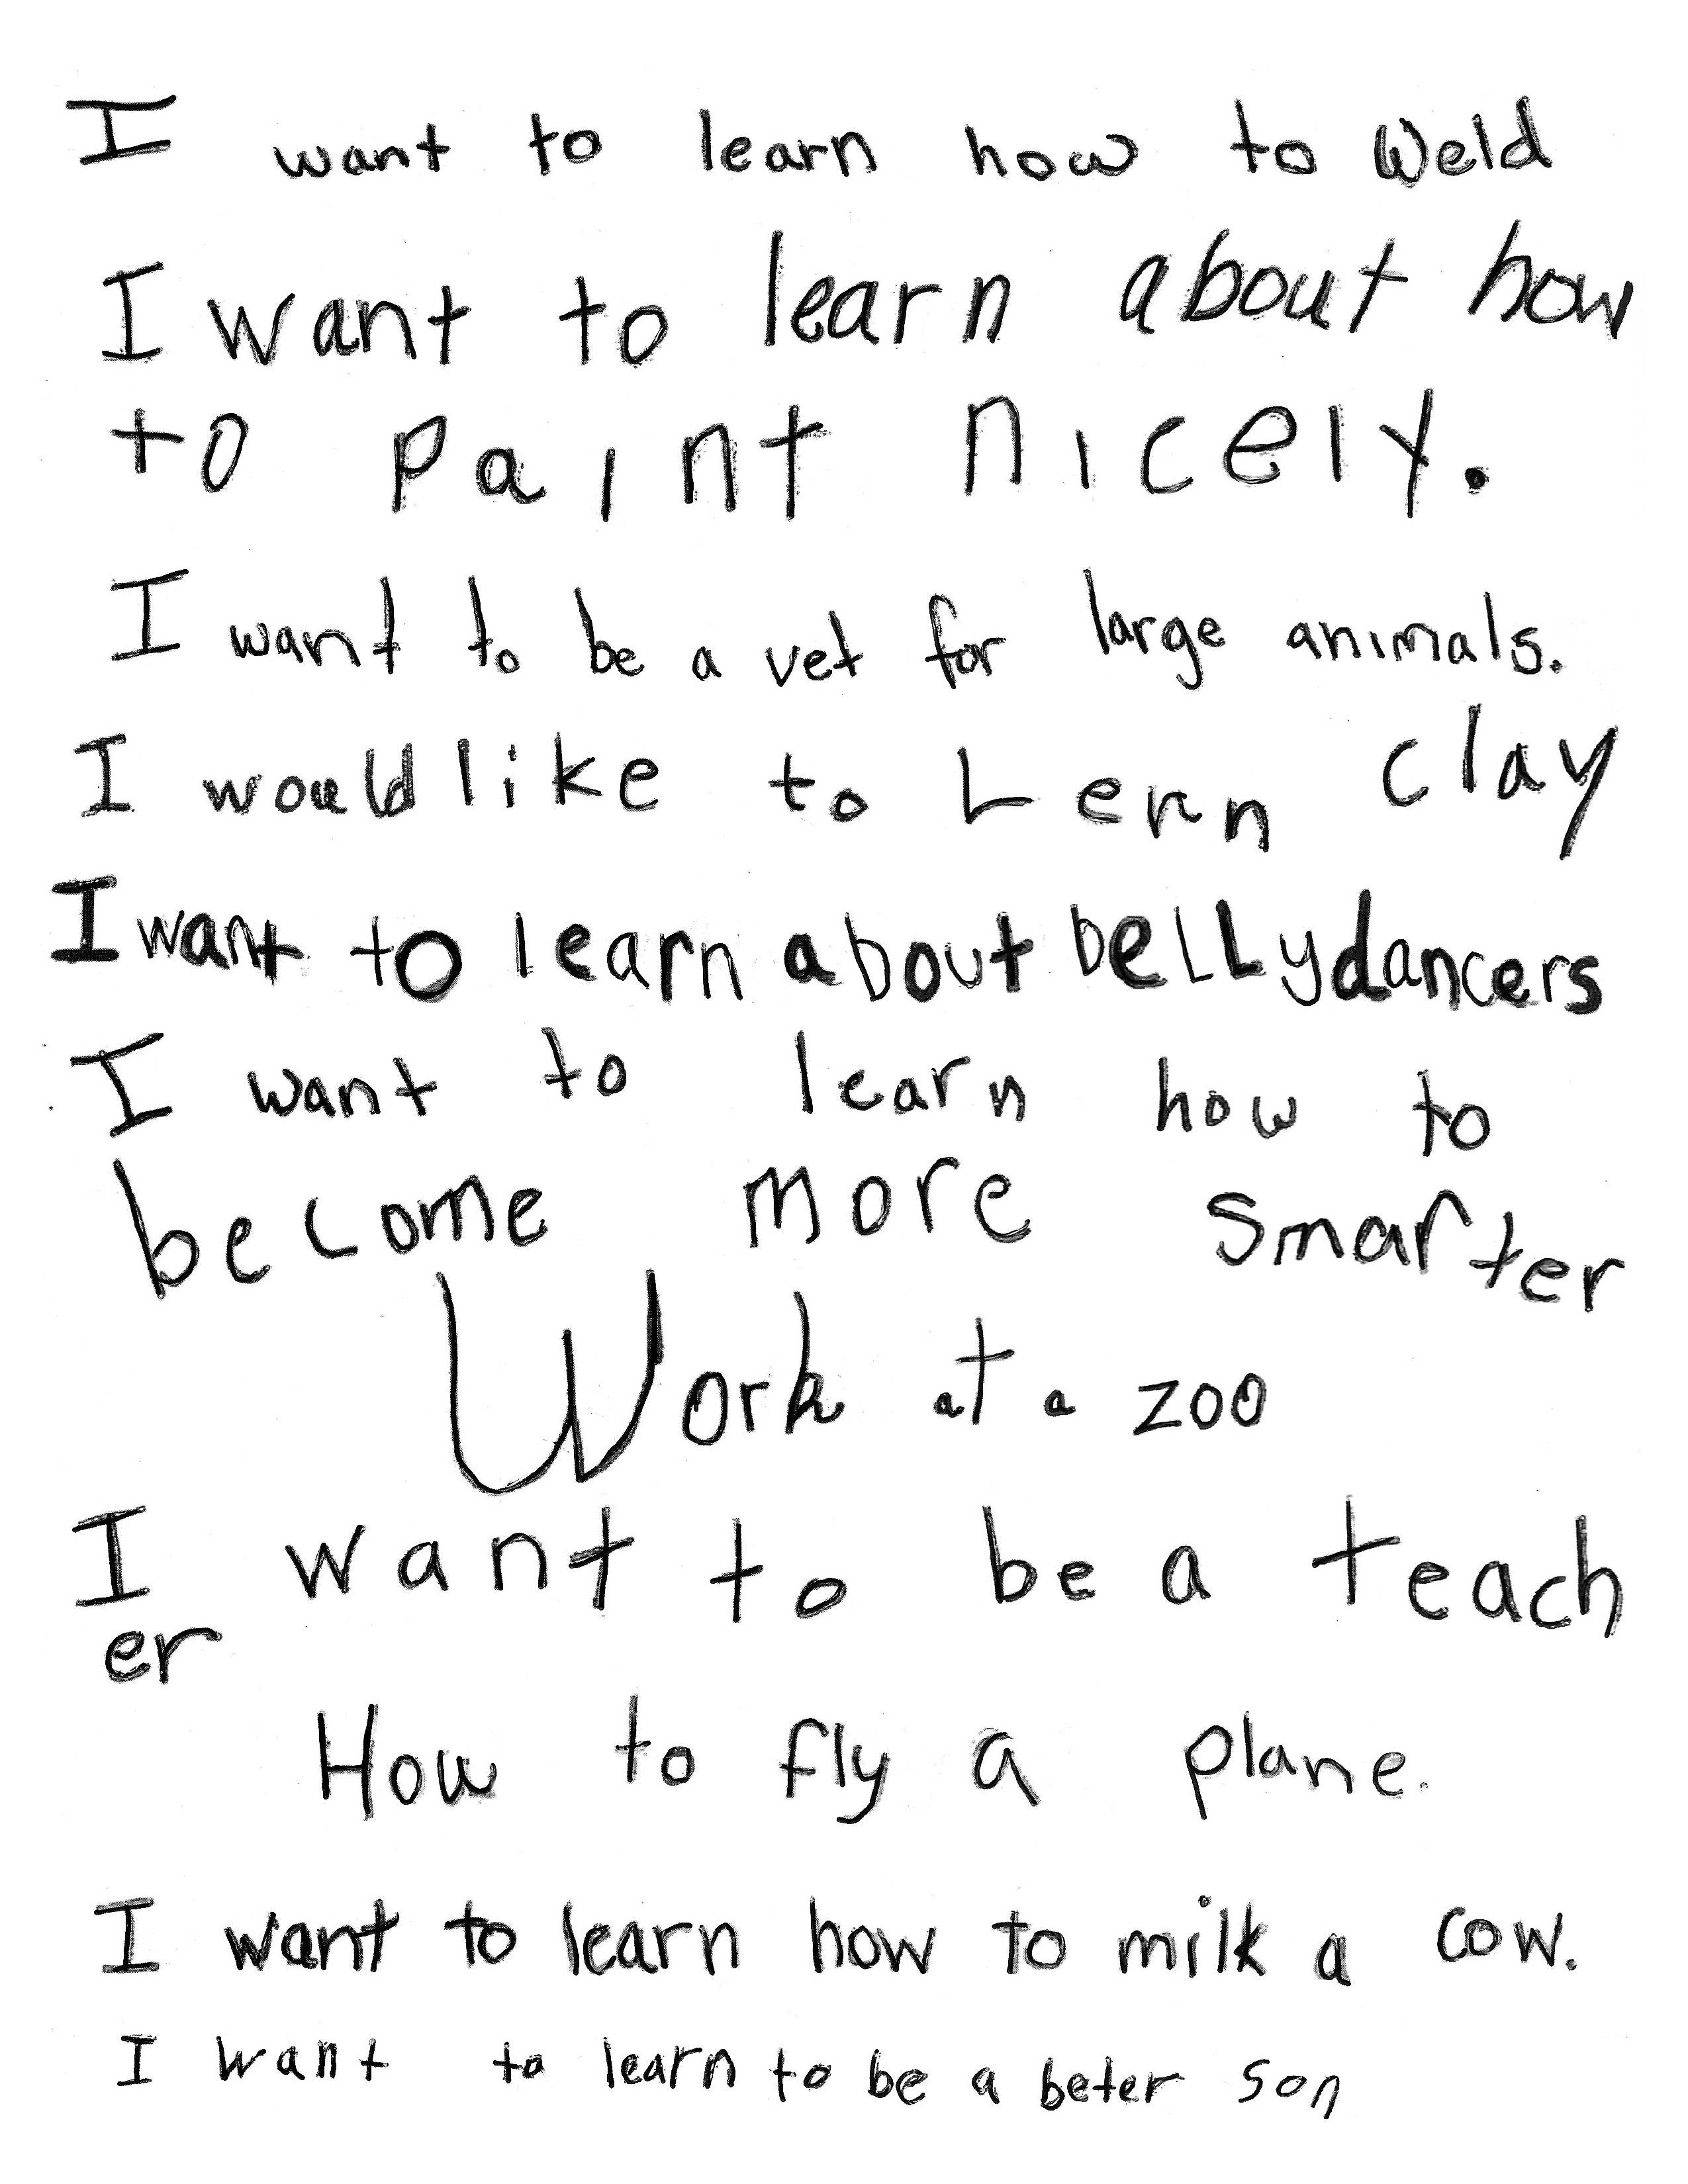 I want to learn how to Weld
I want to learn about how
to paint nicely.
I want to be a vet for large animals.
I would like to Lern clay
I want to learn about beLLydancers
I want to learn how to
become more smarter
Work at a zoo
I want to be a teach
er
How to fly a plane.
I want to learn how to milk a cow.
I want to learn to be a beter son